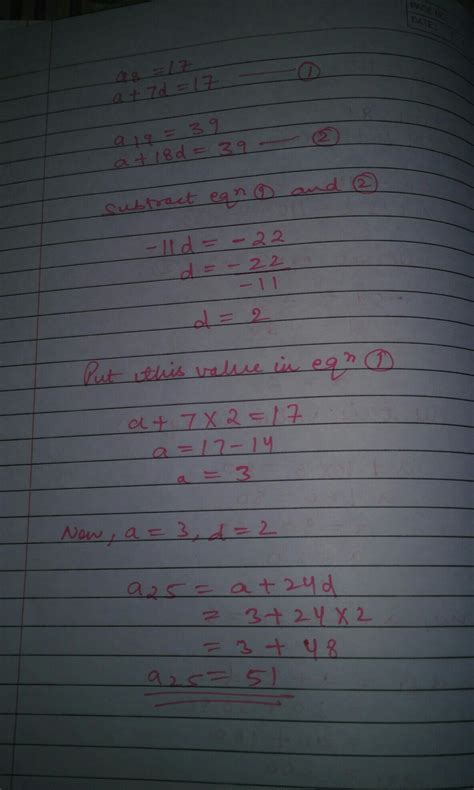 PAGE NO.
DATE:
a8 = 17
a + 7d = 17 —— ①
a19 = 39
a + 18d = 39 — ②
subtract eqn ① and ②
-11d = -22
d = -22
-11
d = 2
Put this value in eqn ①
a + 7 × 2 = 17
a = 17 - 14
a = 3
Now, a = 3, d = 2
a25 = a + 24d
= 3 + 24 × 2
= 3 + 48
a25 = 51